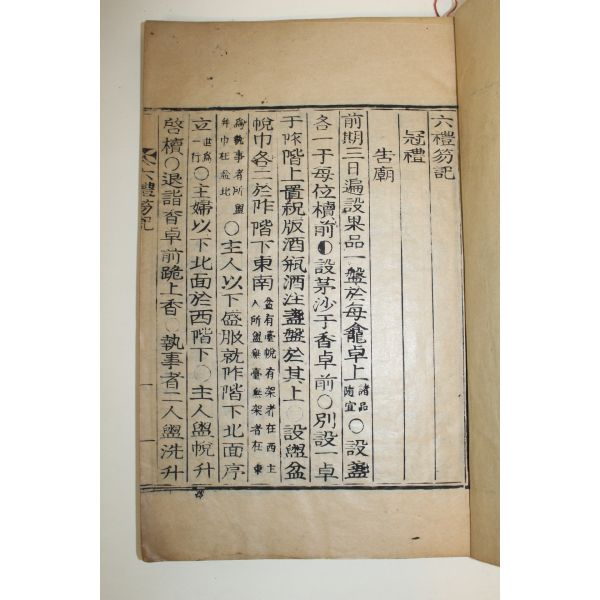 六禮笏記
冠禮
告廟
前期三日遍設果品一盤於每龕卓上諸品隨宜○設盞
各一于每位櫝前○設茅沙于香卓前○別設一卓
于阼階上置祝版酒甁酒注盞盤於其上○設盥盆
帨巾各二於阼階下東南盆有臺帨有架者在西主人所盥無臺無架者在東
執事者所盥○主人以下盛服就阼階下北面序
立世爲一行○主婦以下北面於西階下○主人盥帨升
啓櫝○退詣香卓前跪上香○執事者二人盥洗升
六禮笏記
一